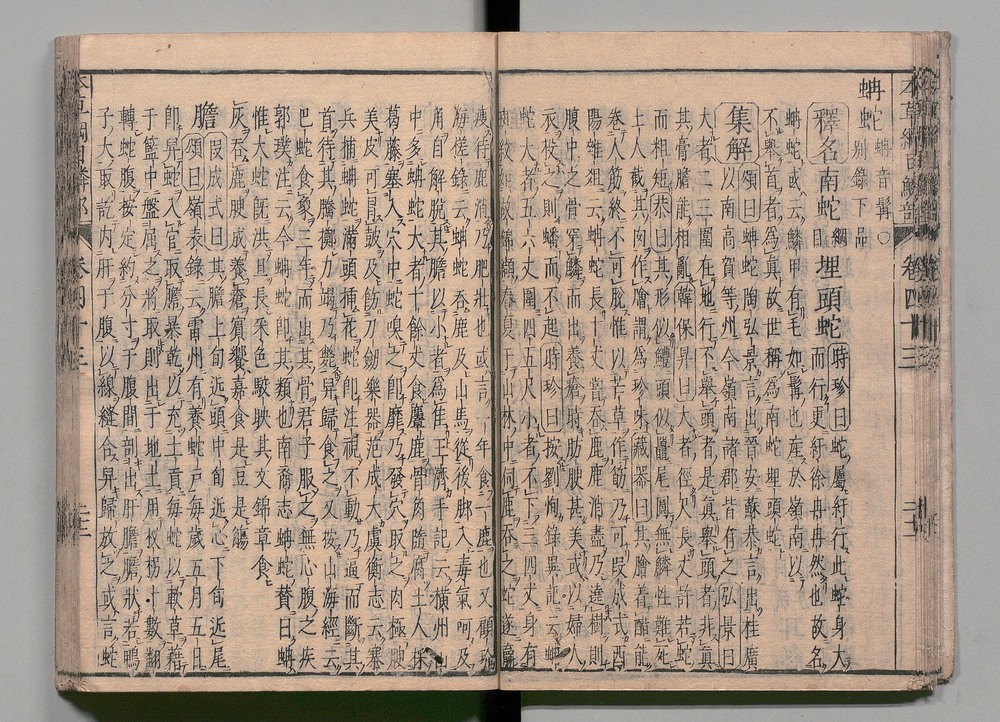 蚺蛇蚺音髯○
別錄下品
釋名南蛇綱目埋頭蛇時珍曰蛇屬紆行此蛇身大
而行更紆徐冉冉然也故名
蚺蛇或云鱗甲有毛如髯也産於嶺南以
不舉首者為真故世稱為南蛇埋頭蛇
集解頌曰蚺蛇陶弘景言出晉安蘇恭言出桂廣
以南高賀等州今嶺南諸郡皆有之弘景曰
大者二三圍在地行不舉頭者是真舉頭者非真
而其膏膽能相亂韓保昇曰大者徑尺長丈許若蛇
而粗短恭曰其形似鱧頭似鼉尾圓無鱗性難死
土人截其肉作膾謂為珍味藏器曰其膾着醋能
卷人筋終不可脫惟以芒草作筋乃可段成式酉
陽雜俎云蚺蛇長十丈嘗吞鹿鹿消盡乃遶樹則
腹中之骨穿鱗而出養瘡時肪腴甚美或以婦人
衣投之則蟠而不起時珍曰按劉恂錄異記云蚺
蛇大者五六丈圍四五尺小者不下三四丈身有
斑紋如故錦纈春夏于山林中伺鹿吞之蛇遂羸
瘦待鹿消乃肥壯也或言一年食一鹿也又顧玠
海槎錄云蚺蛇吞鹿及山馬從後脚入毒氣呵及
角自解脫其膽以小者為佳王濟手記云橫州山
中多蚺蛇大者十餘丈食麞鹿骨角隨腐土人採
葛藤塞入穴中蛇嗅之即靡乃發穴取之肉極腴
美皮可冒皷及飾刀劒樂器范成大虞衡志云寨
兵捕蚺蛇滿頭插花蛇即注視不動乃逼而斷其
首待其騰擲力竭乃斃舁歸食之又按山海經云
巴蛇食象三年而出其骨君子服之無心腹之疾
郭璞注云今蚺蛇即其類也南裔志蚺蛇贊曰蚺
惟大蛇既洪且長采色駮映其文錦章食
灰吞鹿腴成養瘡賓饗嘉食是豆是觴
膽段成式曰其膽上旬近頭中旬近心下旬近尾
頌曰嶺表錄云雷州有養蛇戶每歲五月五日
即舁蛇入官取膽暴乾以充土貢每蛇以軟草藉
于籃中盤屈之將取則出于地上用杈枴十數翻
轉蛇腹按定約分寸于腹間剖出肝膽膽狀若鴨
子大取訖內肝于腹以線縫合舁歸放之或言蛇
本草綱目鱗部 卷四十三